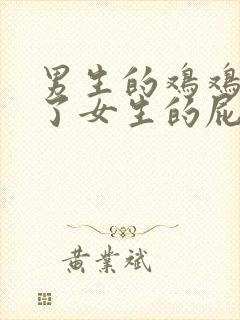 男生的鸡鸡
了女生的屁
黄業斌